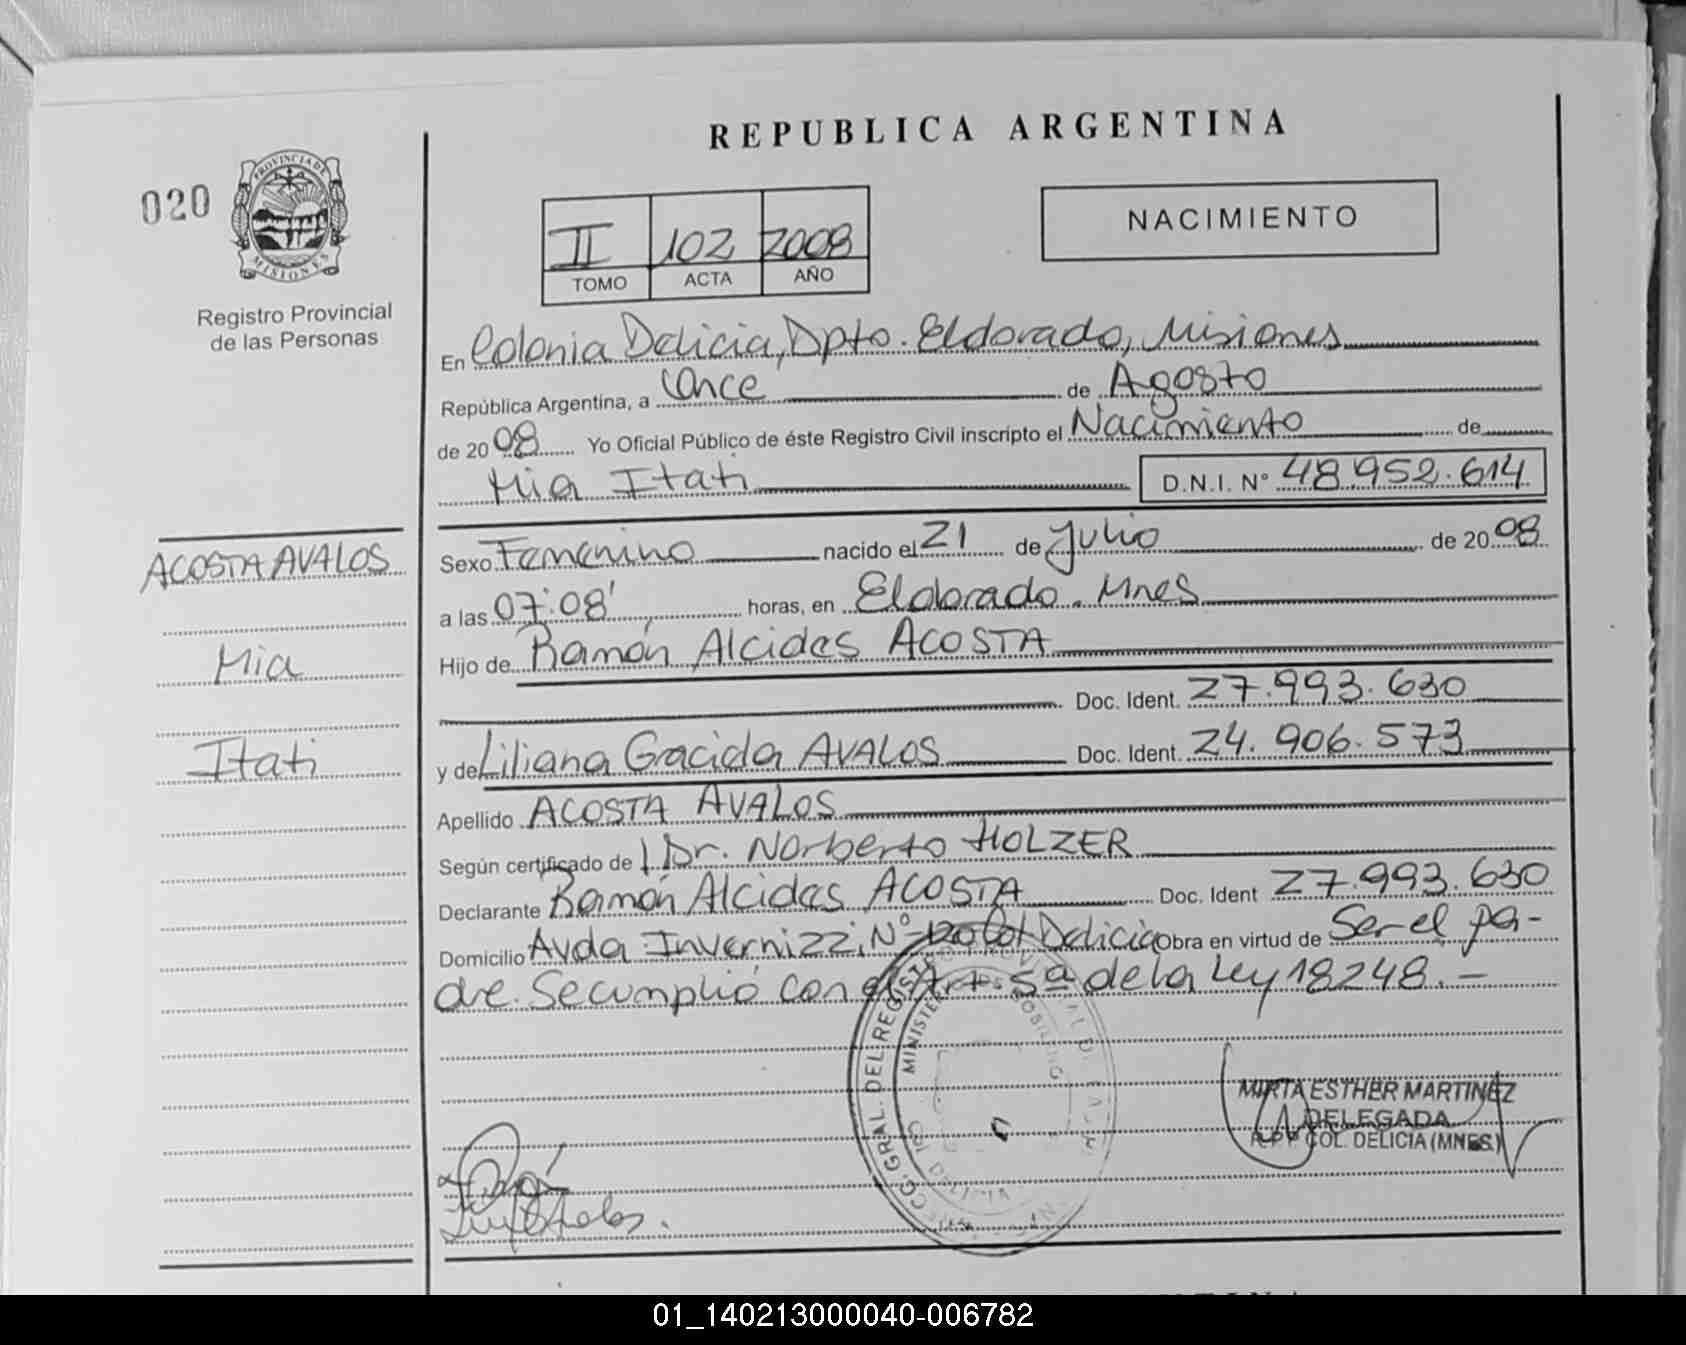 REPUBLICA ARGENTINA
020
PROVINCIA DE
MISIONES
Registro Provincial
de las Personas
II 102 2008
TOMO ACTA AÑO
NACIMIENTO
En Colonia Delicia, Dpto. Eldorado, Misiones
República Argentina, a Once de Agosto
de 2008 Yo Oficial Público de éste Registro Civil inscripto el Nacimiento de
Mia Itati D.N.I. N° 48.952.614
ACOSTA AVALOS
Mia
Itati
Sexo Femenino nacido el 21 de Julio de 2008
a las 07:08' horas, en Eldorado. Mnes
Hijo de Ramón Alcides ACOSTA
Doc. Ident. 27.993.630
y de Liliana Gracida AVALOS Doc. Ident. 24.906.573
Apellido ACOSTA AVALOS
Según certificado de Dr. Norberto HOLZER
Declarante Ramón Alcides ACOSTA Doc. Ident 27.993.630
Domicilio Avda Invernizzi, N° Delicia Obra en virtud de Ser el pa-
dre. Se cumplió con el Art. 5ª de la Ley 18248.-
GRAL. DEL REGISTRO
MIRTA ESTHER MARTINEZ
DELEGADA
R.P.P COL. DELICIA (MNES.)
01_140213000040-006782